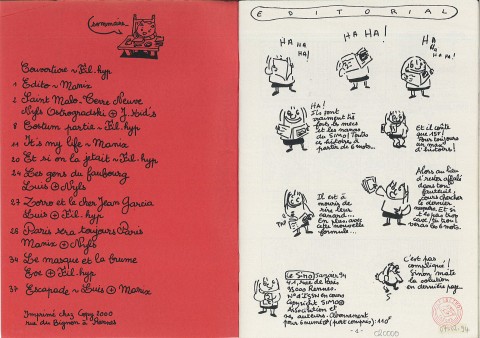 sommaire
Couverture ~ Fil.hyp
1 Edito ~ Manix
2 Saint Malo-Terre Neuve
Nyls Ostrogradski ⊕ J.
8 Costum partie ~ Fil.hyp
It's my life ~ Manix
20 Et si on la jetait ~ Fil.hyp
24 Les gens du faubourg
Luis ⊕ Nyls
27 Zorro et le cher Jean Garcia
Luis ⊕ Fil.hyp
28 Paris sera toujours Paris
Manix ⊕ Nyls
34 Le masque et la brume
Eve ⊕ Fil.hyp
37 Escapade ~ Luis ⊕ Manix
Imprimé chez Copy 2000
rue du Bignon à Rennes
EDITORIAL
HA HA HA!
HA HA!
HA HA HA HA!
HA!
Ils sont
vraiment très
forts les mecs
et les nanas
du Simo! Toutes
ces histoires à
partir de 6 mots...
Et il coûte
que 15F!
Pour toujours
un max
d'histoires!
Il est à
mourir de
rire leur
canard...
En plus avec
cette nouvelle
formule...
Alors au lieu
d'rester affalé
dans ton
fauteuil,
cours chercher
le dernier
numéro. Et si
t'es pas trop
cave
verras les 6 mots.
C'est pas
compliqué!
Sinon mate
la solution
en dernière page.
Le Simo 94
41, rue de Paris
35000 Rennes.
N° d'ISSN en cours
Copyright SIMO
Association et
ses auteurs. Abonnement
pour 6 numéros (port compris): 110F
-1-